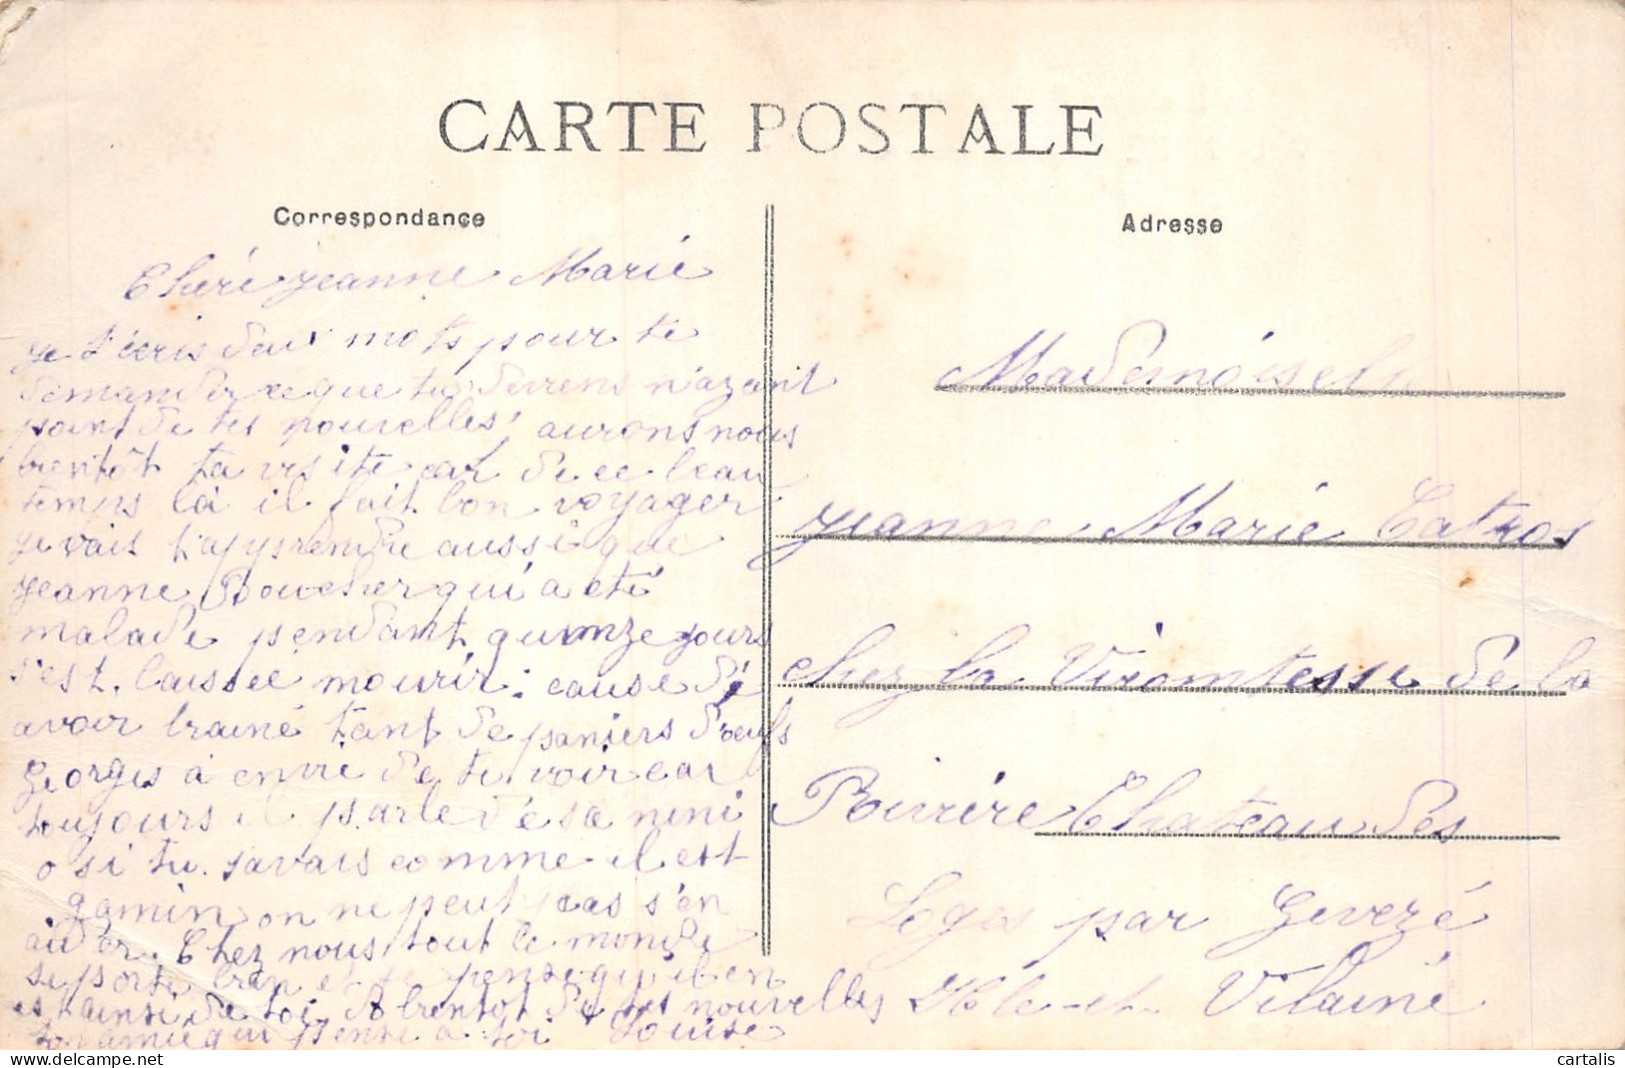 CARTE POSTALE
Correspondance
Adresse
Chéré Jeanne Marié
je t'écris deux mots pour te
demander ce que tu deviens n'ayant
point de tes nouvelles, aurons nous
bientôt ta visite car de ce beau
temps là il fait bon voyager
je vais t'apprendre aussi que
Jeanne Boucher qui a été
malade pendant quinze jours
s'est laissée mourir : cause d'
avoir trainé tant de paniers d'oeufs
Georges à envie de te voir car
toujours il parle de sa nini
o si tu savais comme il est
gamin on ne peut pas s'en
aider. Chez nous tout le monde
se porte bien et je pense qu'il en
est ainsi de toi. A bientot de tes nouvelles
ton amie qui pense à toi Louise
Mademoiselle
Jeanne Marié Catros
chez la Vicomtesse de la
Rivière Chateau des
Loges par Gevezé
Ille-et-Vilainé
cartalis